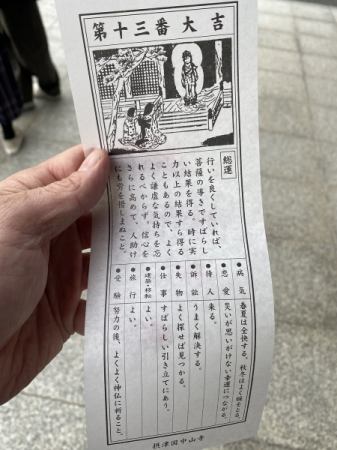 第十三番 大吉
総運
行いを良くしていれば、
菩薩の導きですばらし
い結果を得る。時に実
力以上の結果すら得る
こともあるので、よく
よく謙虚な気持ちを忘
れるべからず。信心を
さらに高めて、人助け
にも労を惜しまぬこと。
●病気 春夏は全快する。秋冬はよく
●恋愛 災いが思いがけない幸運につながる。
●待人 来る。
●訴訟 うまく解決する。
●失物 よく探せば見つかる。
●仕事 すばらしい引き立てにあう。
●建築・移転 よい。
●旅行 よい。
●受験 努力の後、よくよく神仏に祈ること。
摂津国中山寺